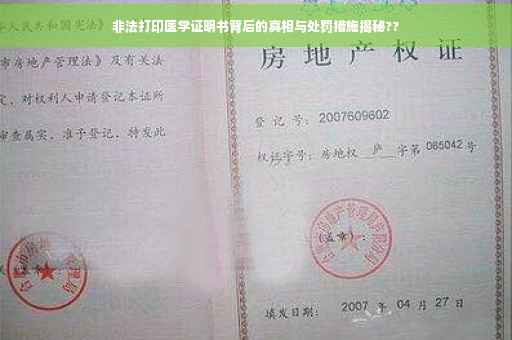 非法打印医学证明书背后的真相与处罚措施揭秘??
人民共和国宪法》
市房地产管理法》及有关法
定，对权利人申请登记本证所
审查属实，准予登记，特发此
房地产
登记号：2007609602
权证字号：房地权 庐 字第 065042 号
(盖章)：
填发日期： 2007 年 04 月 27 日